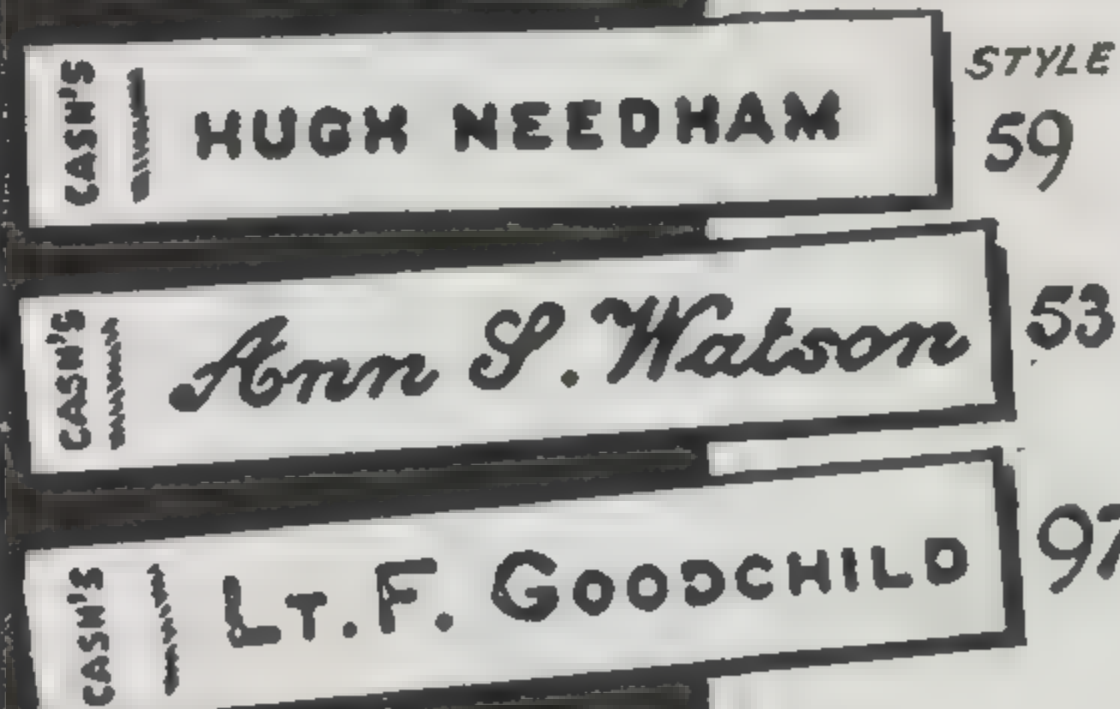 CASH'S HUGH NEEDHAM STYLE 59
CASH'S Ann S. Watson 53
CASH'S LT. F. GOODCHILD 97